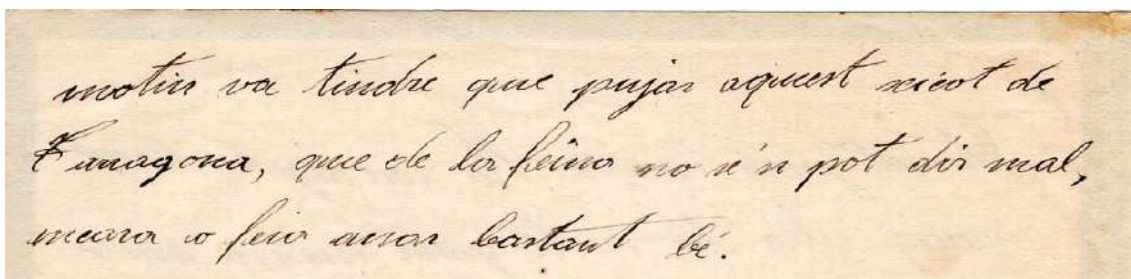 motiu va tindre que pujar aquest xicot de
Tarragona, que de la feina no se'n pot dir mal,
encara o feia anar bastant bé.